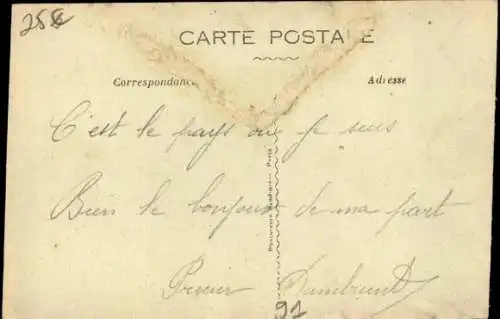 25€
CARTE POSTALE
Correspondance
Adresse
C'est le pays ou je suis
Bien le bonjour de ma part
91